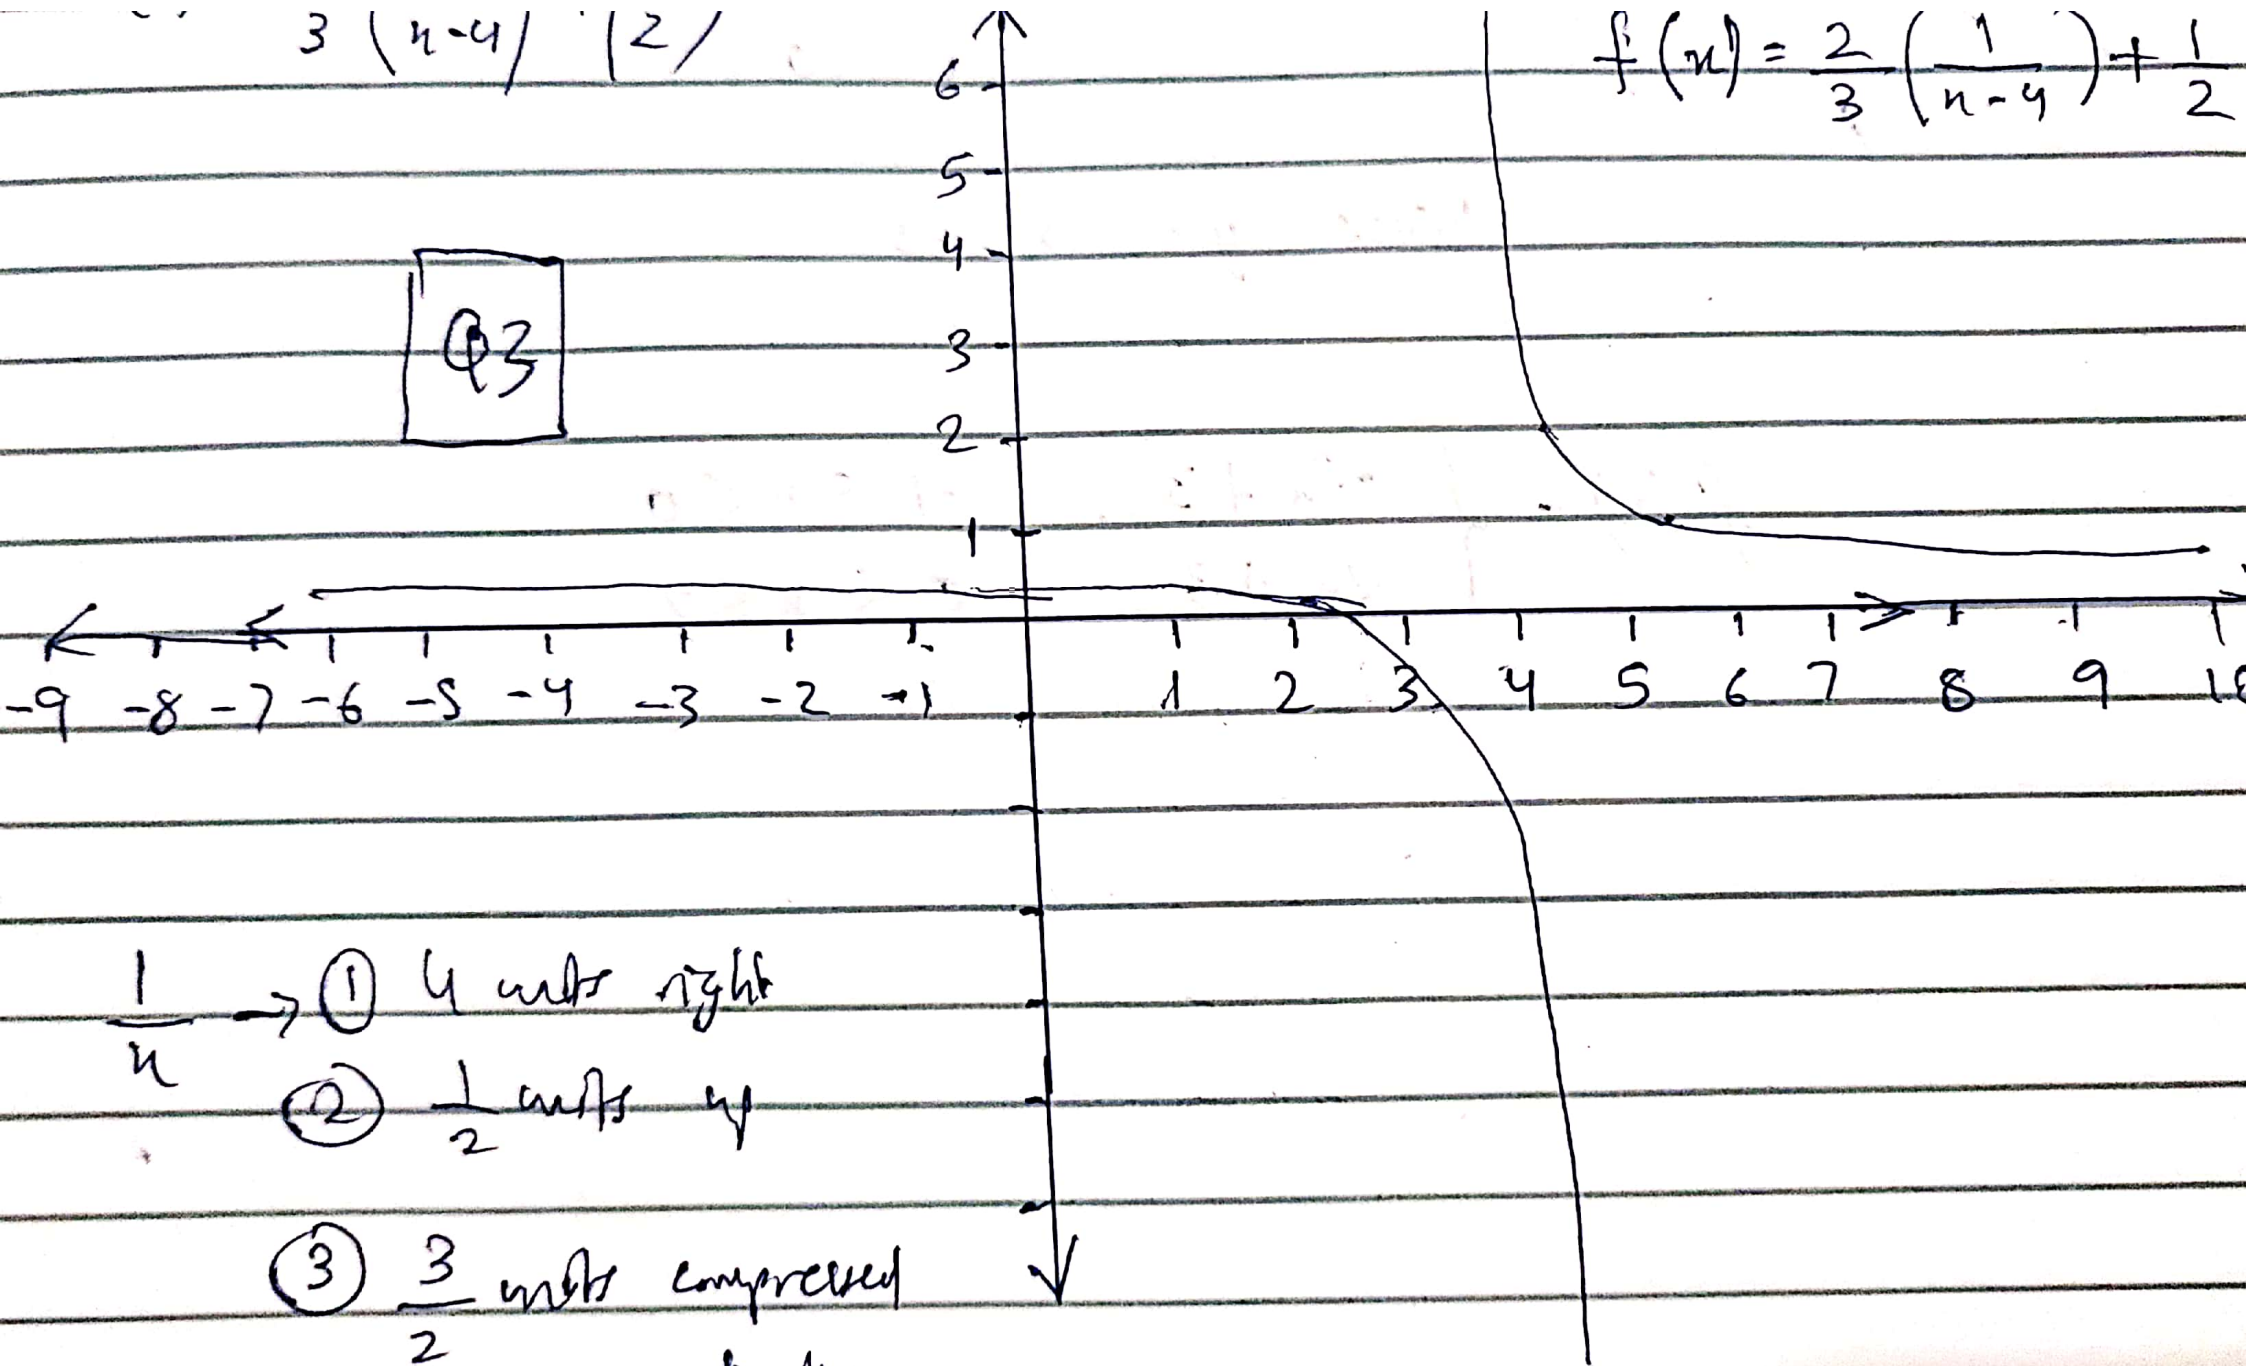 3 (x-4) (2)
f(x) = 2/3 (1/(x-4)) + 1/2
6
5
4
Q3
3
2
1
-9 -8 -7 -6 -5 -4 -3 -2 -1 1 2 3 4 5 6 7 8 9 10
1/x → ① 4 units right
② 1/2 units up
③ 3/2 units compressed